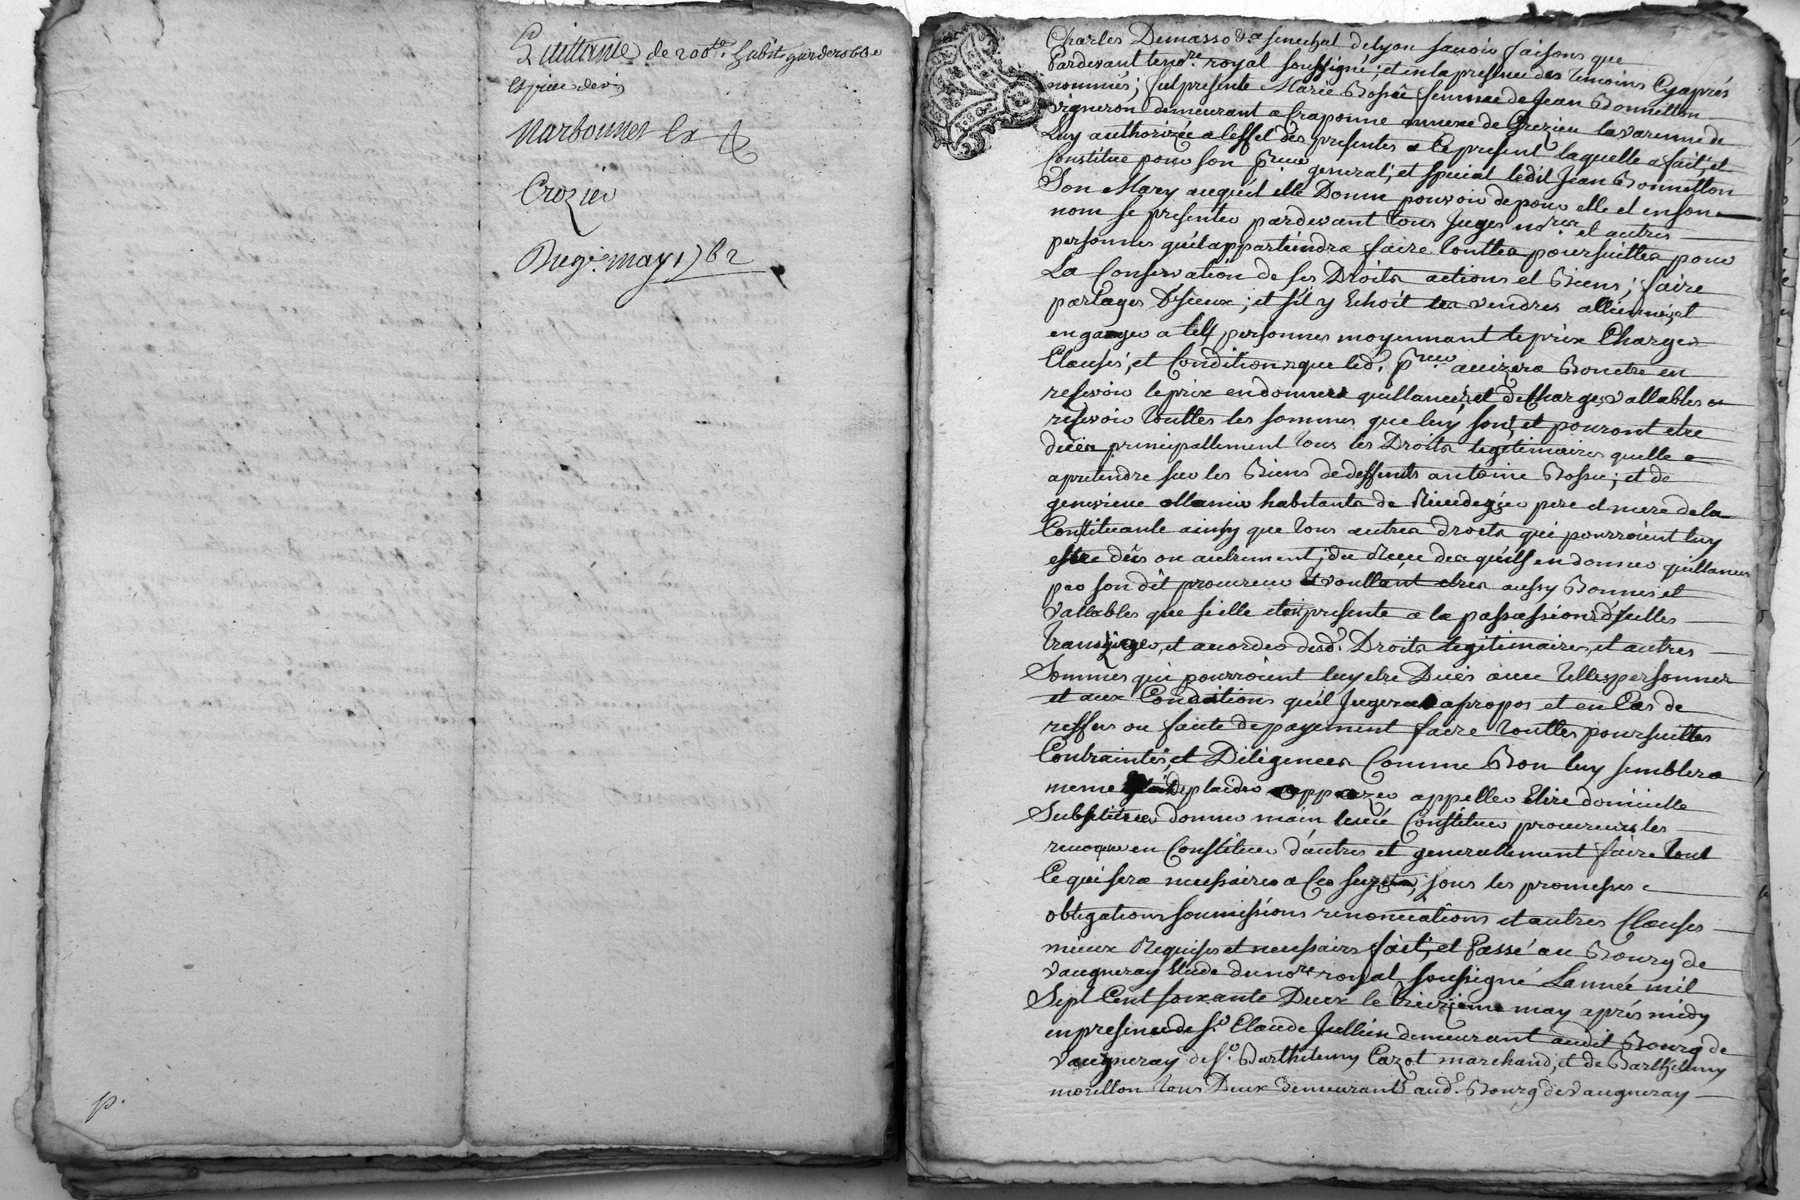 Quittance de 200 lt.
Narbonnet la
Crozier
Du 9e. may 1762
p.
Charles Demasso &a senechal de lyon savoir faisons que
Pardevant le nore. royal soussigné; et en la presence des temoins Cyaprés
nommés; fut presente Marie Bossû femme de Jean Bonnetton
vigneron demeurant a Craponne annexe de Grezieu lavarenne de
Luy authorizée a leffet des presentes a Ce present laquelle a fait, et
Constitue pour son Preur. general; et special ledit Jean Bonnetton
Son Mary auquel elle Donne pouvoir de pour elle et en son
nom se presenter pardevant tous Juges nores. et autres
personnes quil appartiendra faire touttes poursuittes pour
La Conservation de ses Droits actions et Biens; faire
partages D'iceux; et s'il y Echoit les vendres alliener, et
engager a tels personnes moyennant le prix Charges
Clauses, et Conditions que led. Preur. avizera Bon etre en
resevoir le prix en donner quittances, et decharges vallables
resevoir touttes les sommes que luy sont, et pouront etre
dües principallement tous les Droits legitimaires quelle a
a pretendre sur les Biens de deffunts antoine Bossu; et de
genevieve habitants de pere et mere de la
Constituante ainsy que tous autres droits qui pourroient luy
estre dûs ou autrement; du Reçu des quels en donner quittances
par son dit procureur voullant etres aussy Bonnes et
vallables que si elle etoit presente a la passassion d'icelles
transiger, et acorder desd. Droits legitimaires, et autres
Sommes qui pourroient luy etre Dües avec telles personnes
et aux Conditions qu'il Jugera apropos et en Cas de
reffus ou faute de payement faire touttes poursuittes
Contraintes, et Diligences Comme Bon luy semblera
meme plaider appeller Elire domicille
Substituer donner main levée Constituer procureurs les
revoquer en Constituer d'autres et generallement faire tout
Ce qui sera necessaires a Ces sujets, sous les promesses
obligations soumissions renonciations et autres Clauses
mieux Requises et necessaires fait, et Passé au Bourg de
vaugneray Etude du nore royal soussigné Lannée mil
Sept Cent soixante Deux le treizieme may aprés midy
en presence de Sr. Claude Jullien demeurant audit Bourg de
vaugneray de Sr. Barthelemy Cazot marchand, et de Barthelemy
morillon tous Deux Demeurants aud. Bourg de vaugneray